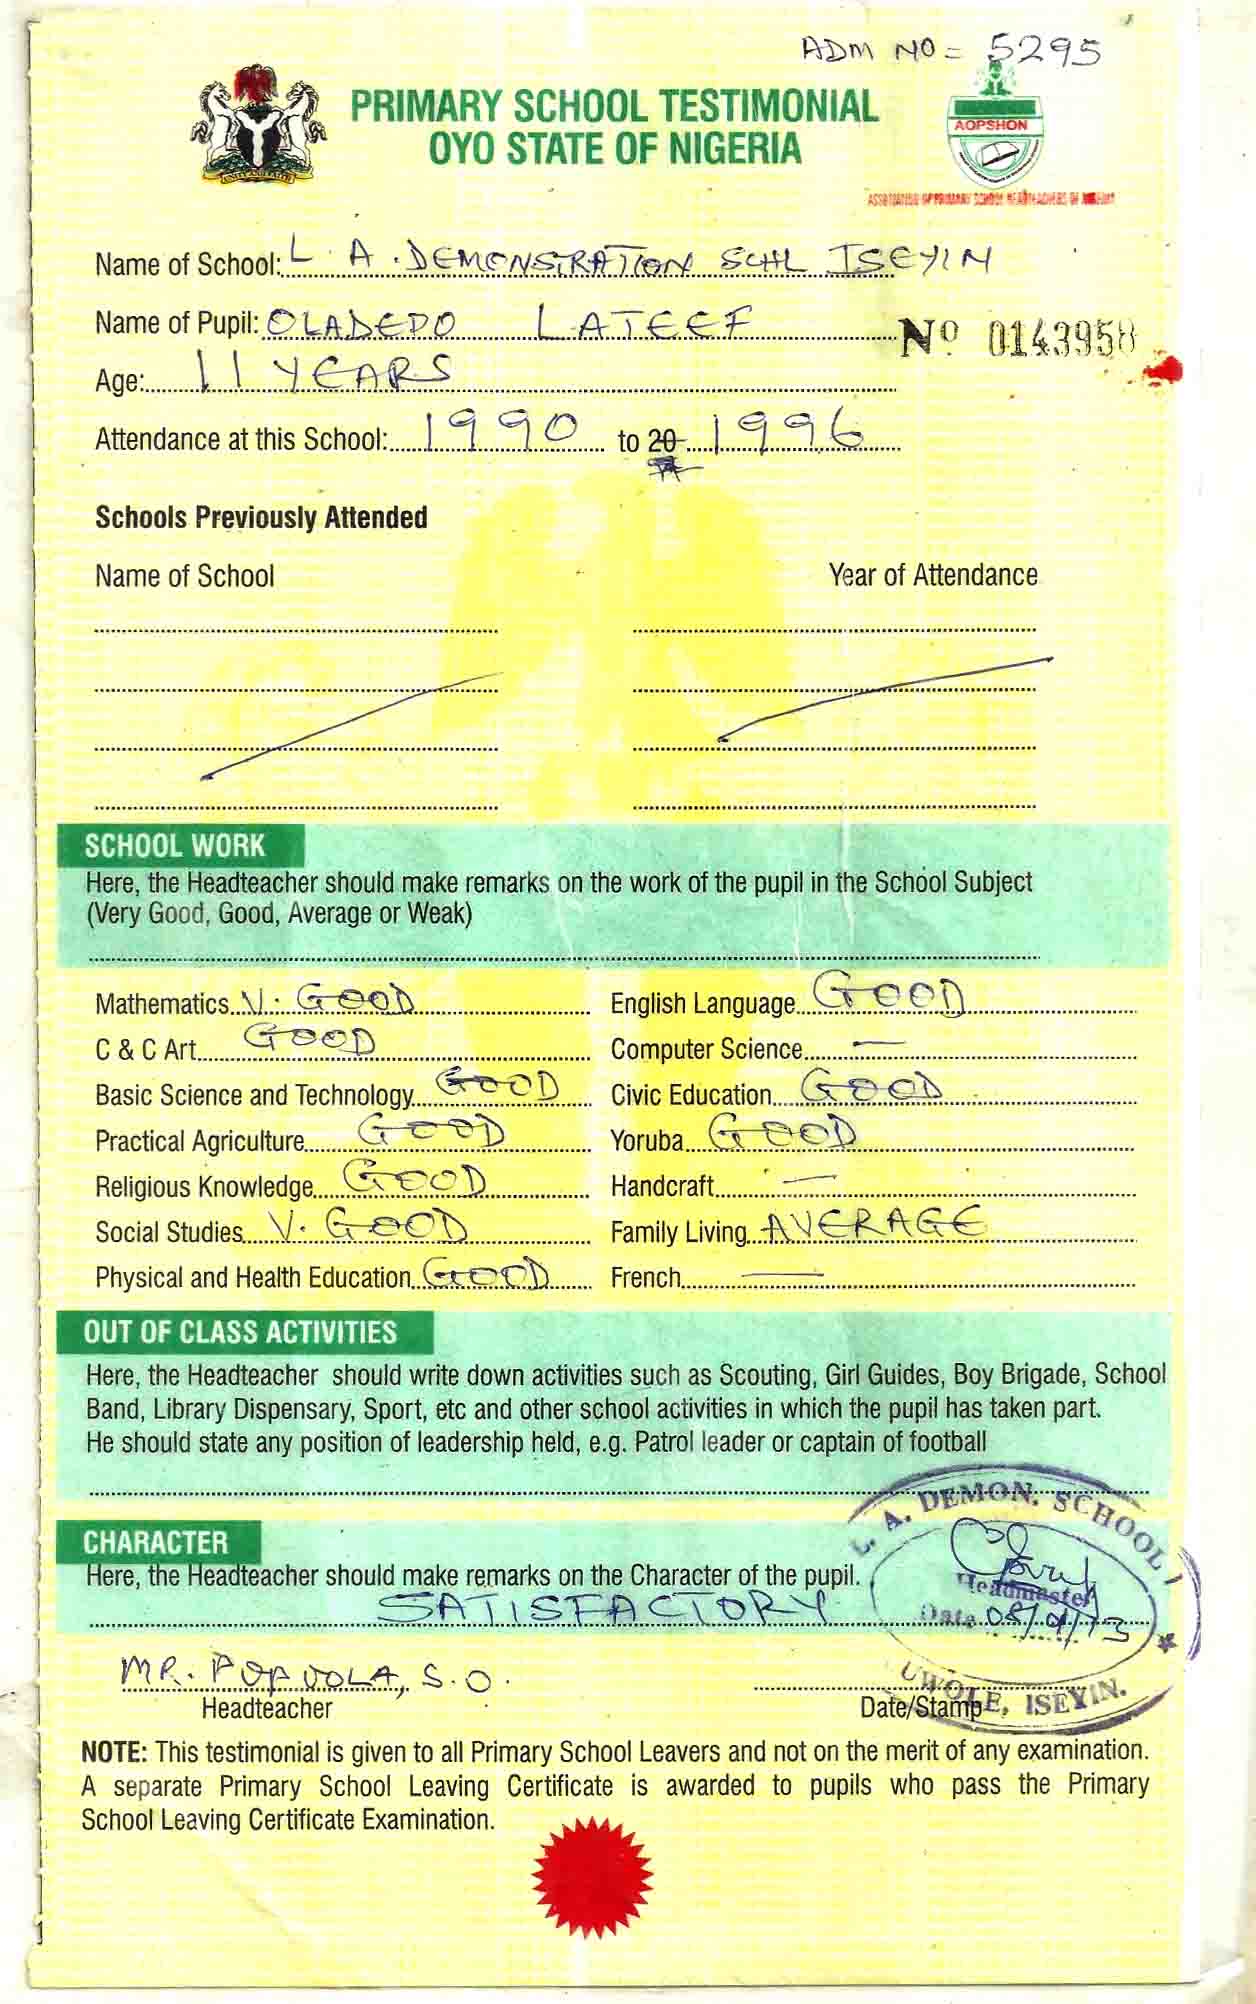 ADM NO = 5295
PRIMARY SCHOOL TESTIMONIAL
OYO STATE OF NIGERIA
AOPSHON
ASSOCIATION OF PRIMARY SCHOOL HEADTEACHERS OF NIGERIA
Name of School: L. A. DEMONSTRATION SCHL ISEYIN
Name of Pupil: OLADEPO LATEEF
No 0143958
Age: 11 YEARS
Attendance at this School: 1990 to 20 1996
Schools Previously Attended
Name of School Year of Attendance
SCHOOL WORK
Here, the Headteacher should make remarks on the work of the pupil in the School Subject
(Very Good, Good, Average or Weak)
Mathematics V. GOOD English Language GOOD
C & C Art GOOD Computer Science —
Basic Science and Technology GOOD Civic Education GOOD
Practical Agriculture GOOD Yoruba GOOD
Religious Knowledge GOOD Handcraft —
Social Studies V. GOOD Family Living AVERAGE
Physical and Health Education GOOD French —
OUT OF CLASS ACTIVITIES
Here, the Headteacher should write down activities such as Scouting, Girl Guides, Boy Brigade, School
Band, Library Dispensary, Sport, etc and other school activities in which the pupil has taken part.
He should state any position of leadership held, e.g. Patrol leader or captain of football
L. A. DEMON. SCHOOL 1
CHARACTER
Here, the Headteacher should make remarks on the Character of the pupil.
Headmaster
SATISFACTORY
Date
MR. POPOOLA, S. O.
Headteacher Date/Stamp
UWOLE, ISEYIN.
NOTE: This testimonial is given to all Primary School Leavers and not on the merit of any examination.
A separate Primary School Leaving Certificate is awarded to pupils who pass the Primary
School Leaving Certificate Examination.